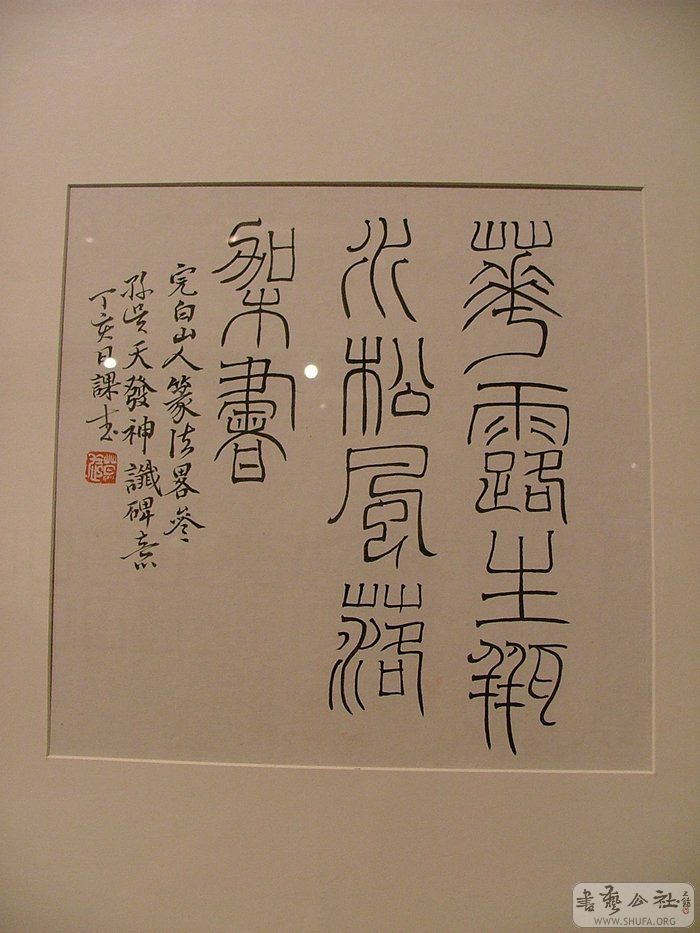 華露生瓶
水松風落
架書
完白山人篆法畧參
孫吳天發神讖碑意
丁亥日課書
書藝公社
WWW.SHUFA.ORG